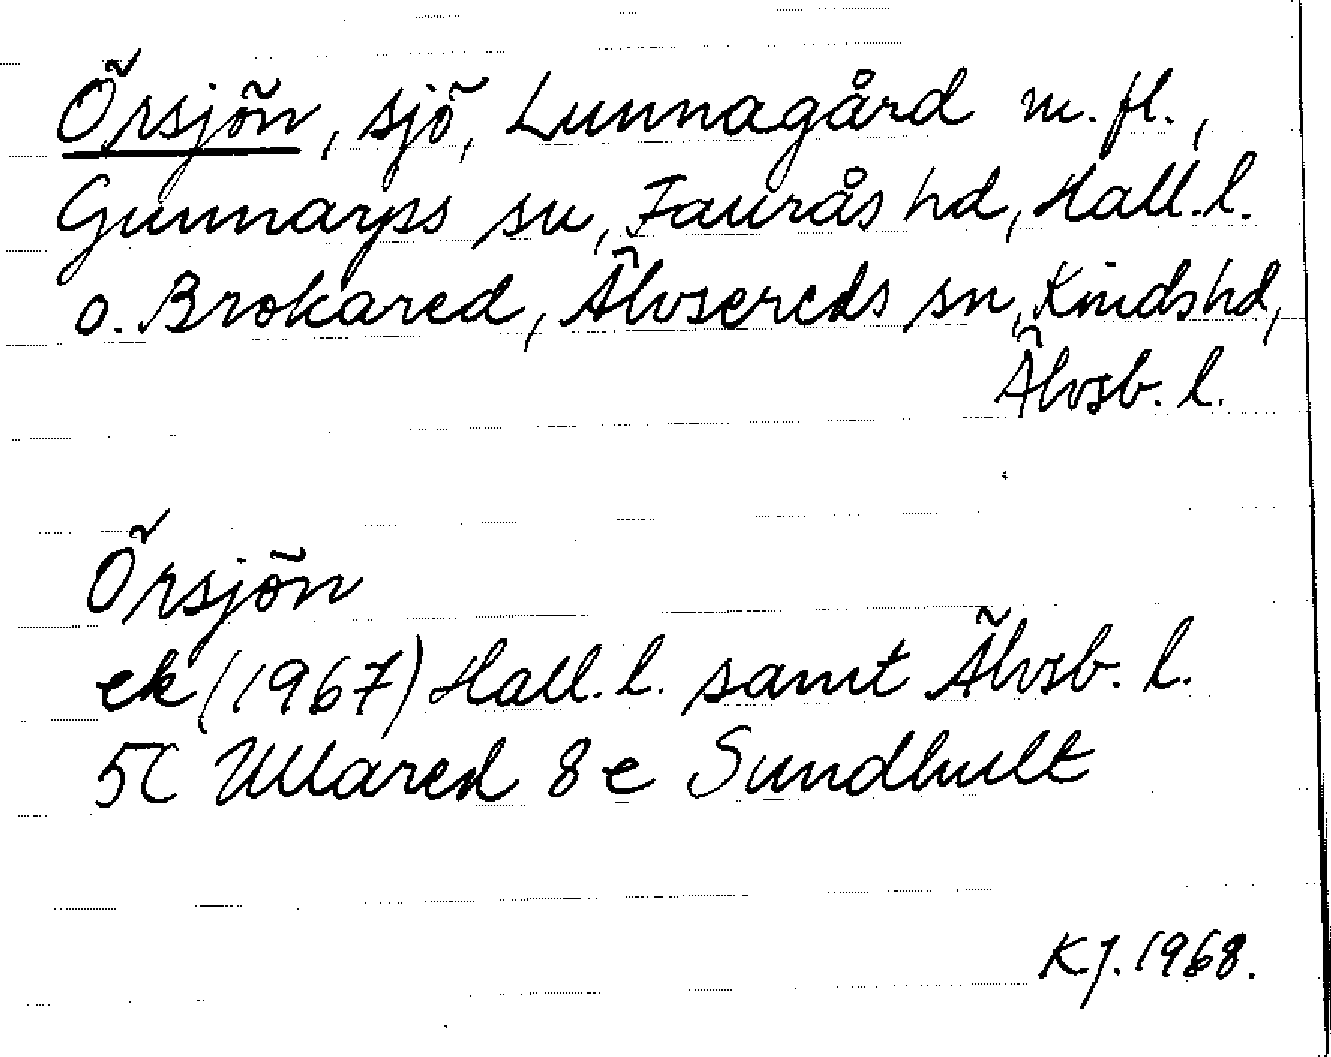 Örsjön, sjö, Lunnagård m.fl.,
Gunnarps sn, Faurås hd, Hall.l.
o. Brokared, Älvsereds sn, Kinds hd,
Älvsb. l.
Örsjön
ek (1967) Hall.l. samt Älvsb. l.
5C Ullared 8e Sundhult
KJ. 1968.